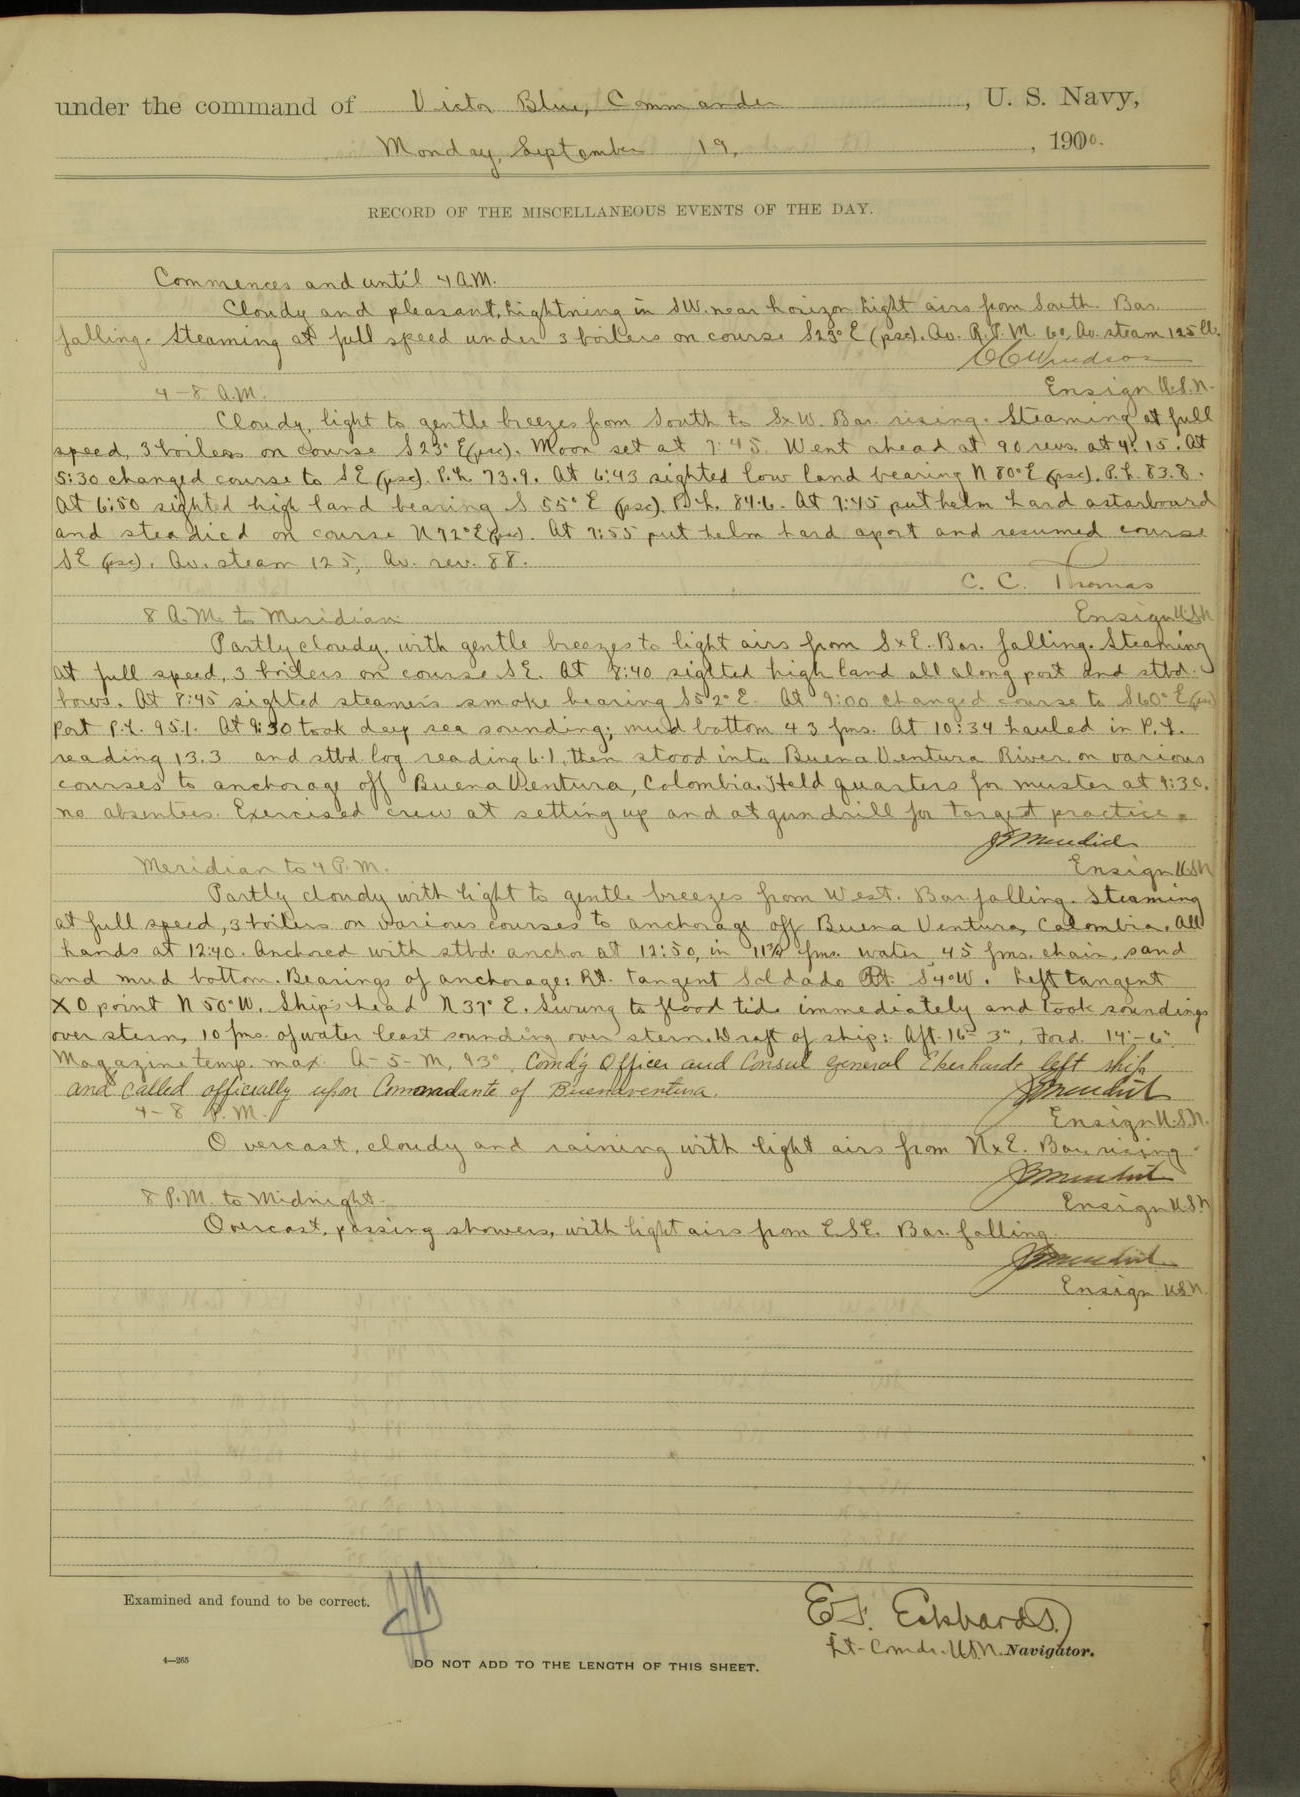 under the command of Victor Blue, Commander, U. S. Navy,
Monday, September 19, , 190
RECORD OF THE MISCELLANEOUS EVENTS OF THE DAY.
Commences and until 4 A.M.
Cloudy and pleasant, lightning in SW. near horizon light airs from South. Bar.
falling. Steaming at full speed under 3 boilers on course S23°E (psc). Av. R.P.M. 60, Av. steam 125 lb.
Ensign U.S.N.
4-8 A.M.
Cloudy, light to gentle breezes from South to SxW. Bar. rising. Steaming at full
speed, 3 boilers on course S23°E (psc). Moon set at 7:45. Went ahead at 90 revs. at 4:15. At
5:30 changed course to SE (psc). P.L. 73.9. At 6:43 sighted low land bearing N 80°E (psc). P.L. 83.8.
At 6:50 sighted high land bearing S 55° E (psc). P.L. 84.6. At 7:45 put helm hard astarboard
and steadied on course N72°E (psc). At 7:55 put helm hard aport and resumed course
SE (psc). Av. steam 125, Av. rev. 88.
C. C. Thomas
Ensign U.S.N
8 A.M. to Meridian
Partly cloudy, with gentle breezes to light airs from SxE. Bar. falling. Steaming
at full speed, 3 boilers on course SE. At 8:40 sighted high land all along port and stbd.
bows. At 8:45 sighted steamer's smoke bearing S52°E. At 9:00 changed course to S60°E (psc)
Port P.L. 95.1. At 9:30 took deep sea sounding; mud bottom 43 fms. At 10:34 hauled in P.L.
reading 13.3 and stbd. log reading 6.1, then stood into Buena Ventura River on various
courses to anchorage off Buena Ventura, Colombia. Held quarters for muster at 9:30.
no absentees. Exercised crew at setting up and at gun drill for target practice.
Ensign U.S.N
Meridian to 4 P.M.
Partly cloudy with light to gentle breezes from West. Bar. falling. Steaming
at full speed, 3 boilers on various courses to anchorage off Buena Ventura, Colombia. All
hands at 12:40. Anchored with stbd. anchor at 12:50, in 11¾ fms. water, 45 fms. chain, sand
and mud bottom. Bearings of anchorage: Rt. tangent Soldado Pt. S4°W. Left tangent
X O point N 50°W. Ship's head N 37° E. Swung to flood tide immediately and took soundings
over stern, 10 fms. of water least sounding over stern. Draft of ship: Aft. 16'-3", Ford. 14'-6".
Magazine temp. max. A-5-M, 93°. Comd'g Officer and Consul General Eberhardt left ship
and called officially upon Commandante of Buenaventura.
Ensign U.S.N.
4-8 P.M.
Overcast, cloudy and raining with light airs from NxE. Bar. rising.
Ensign U.S.N
8 P.M. to Midnight.
Overcast, passing showers, with light airs from ESE. Bar. falling.
Ensign U.S.N.
Examined and found to be correct.
Lt-Comdr. U.S.N. Navigator.
4—265
DO NOT ADD TO THE LENGTH OF THIS SHEET.